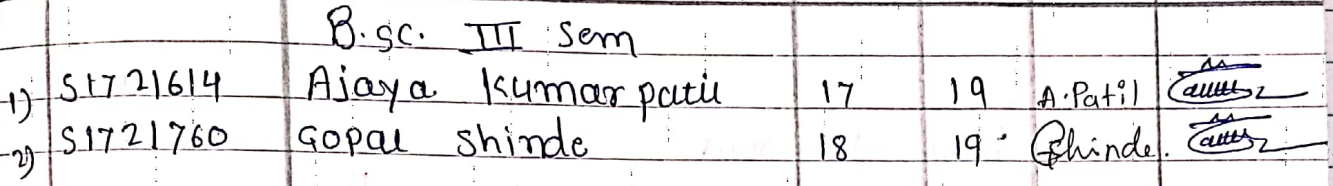 B.sc. III sem
1) S1721614 Ajaya Kumar patil 17 19 A.Patil
2) S1721760 Gopal Shinde 18 19 Shinde.